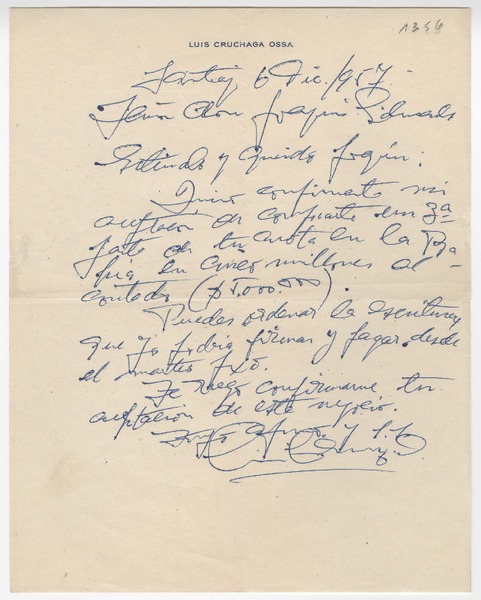 1356
LUIS CRUCHAGA OSSA
6 Dic./957
Señor don Joaquín Edwards
Estimado y querido Joaquín:
Quiero confirmarte mi
aceptación de comprarte una 3a
parte de tu cuota en la
en cinco millones al
contado ($ 5.000.000).
Puedes ordenar la escritura
que yo podría firmar y pagar desde
el martes pxo.
Te ruego confirmarme tu
aceptación de este negocio.